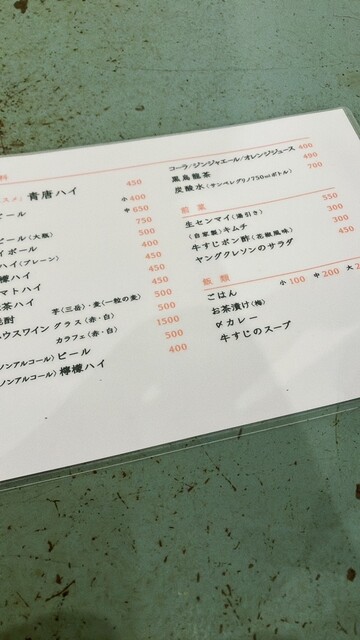 料
スメ) 青唐ハイ 450
ビール 小400
中650
ビール(大瓶) 750
イボール 500
ハイ(プレーン) 400
檬ハイ 450
マトハイ 450
茶ハイ 450
焼酎 芋(三岳)・麦(一粒の麦) 500
ハウスワイン グラス(赤・白) 500
カラフェ(赤・白) 1500
ノンアルコール) ビール 500
ノンアルコール) 檸檬ハイ 400
コーラ/ジンジャエール/オレンジジュース 400
黒烏龍茶 490
炭酸水(サンペレグリノ750mlボトル) 700
前菜
生センマイ(湯引き) 550
(自家製)キムチ 300
牛すじポン酢(花椒風味) 450
ヤングクレソンのサラダ
飯類
ごはん 小100 中200 大2
お茶漬け(梅)
〆カレー
牛すじのスープ